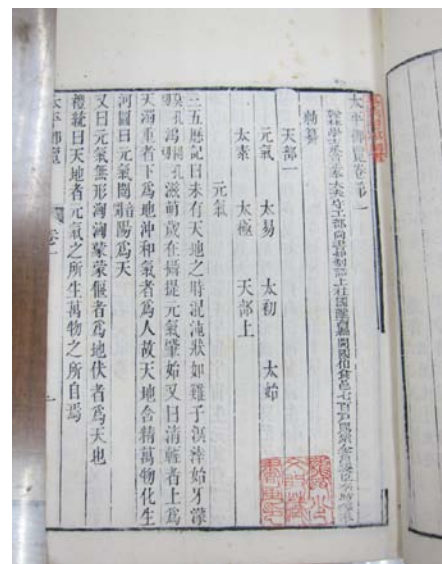 太平御覽卷第一
翰林學士承旨正奉大夫守工部尚書知制誥上柱國隴西縣開國伯食邑七百戶賜紫金魚袋臣李昉等奉
勑纂
天部一
元氣　太易　太初　太始
太素　太極　天部上
元氣
三五歷記曰未有天地之時混沌狀如雞子溟涬始牙濛
鴻滋萌歲在攝提元氣肇始又曰清輕者上爲
天濁重者下爲地沖和氣者爲人故天地含精萬物化生
河圖曰元氣闓陽爲天
又曰元氣無形洶洶蒙蒙偃者爲地伏者爲天也
禮統曰天地者元氣之所生萬物之所自焉
太平御覽　卷一　一